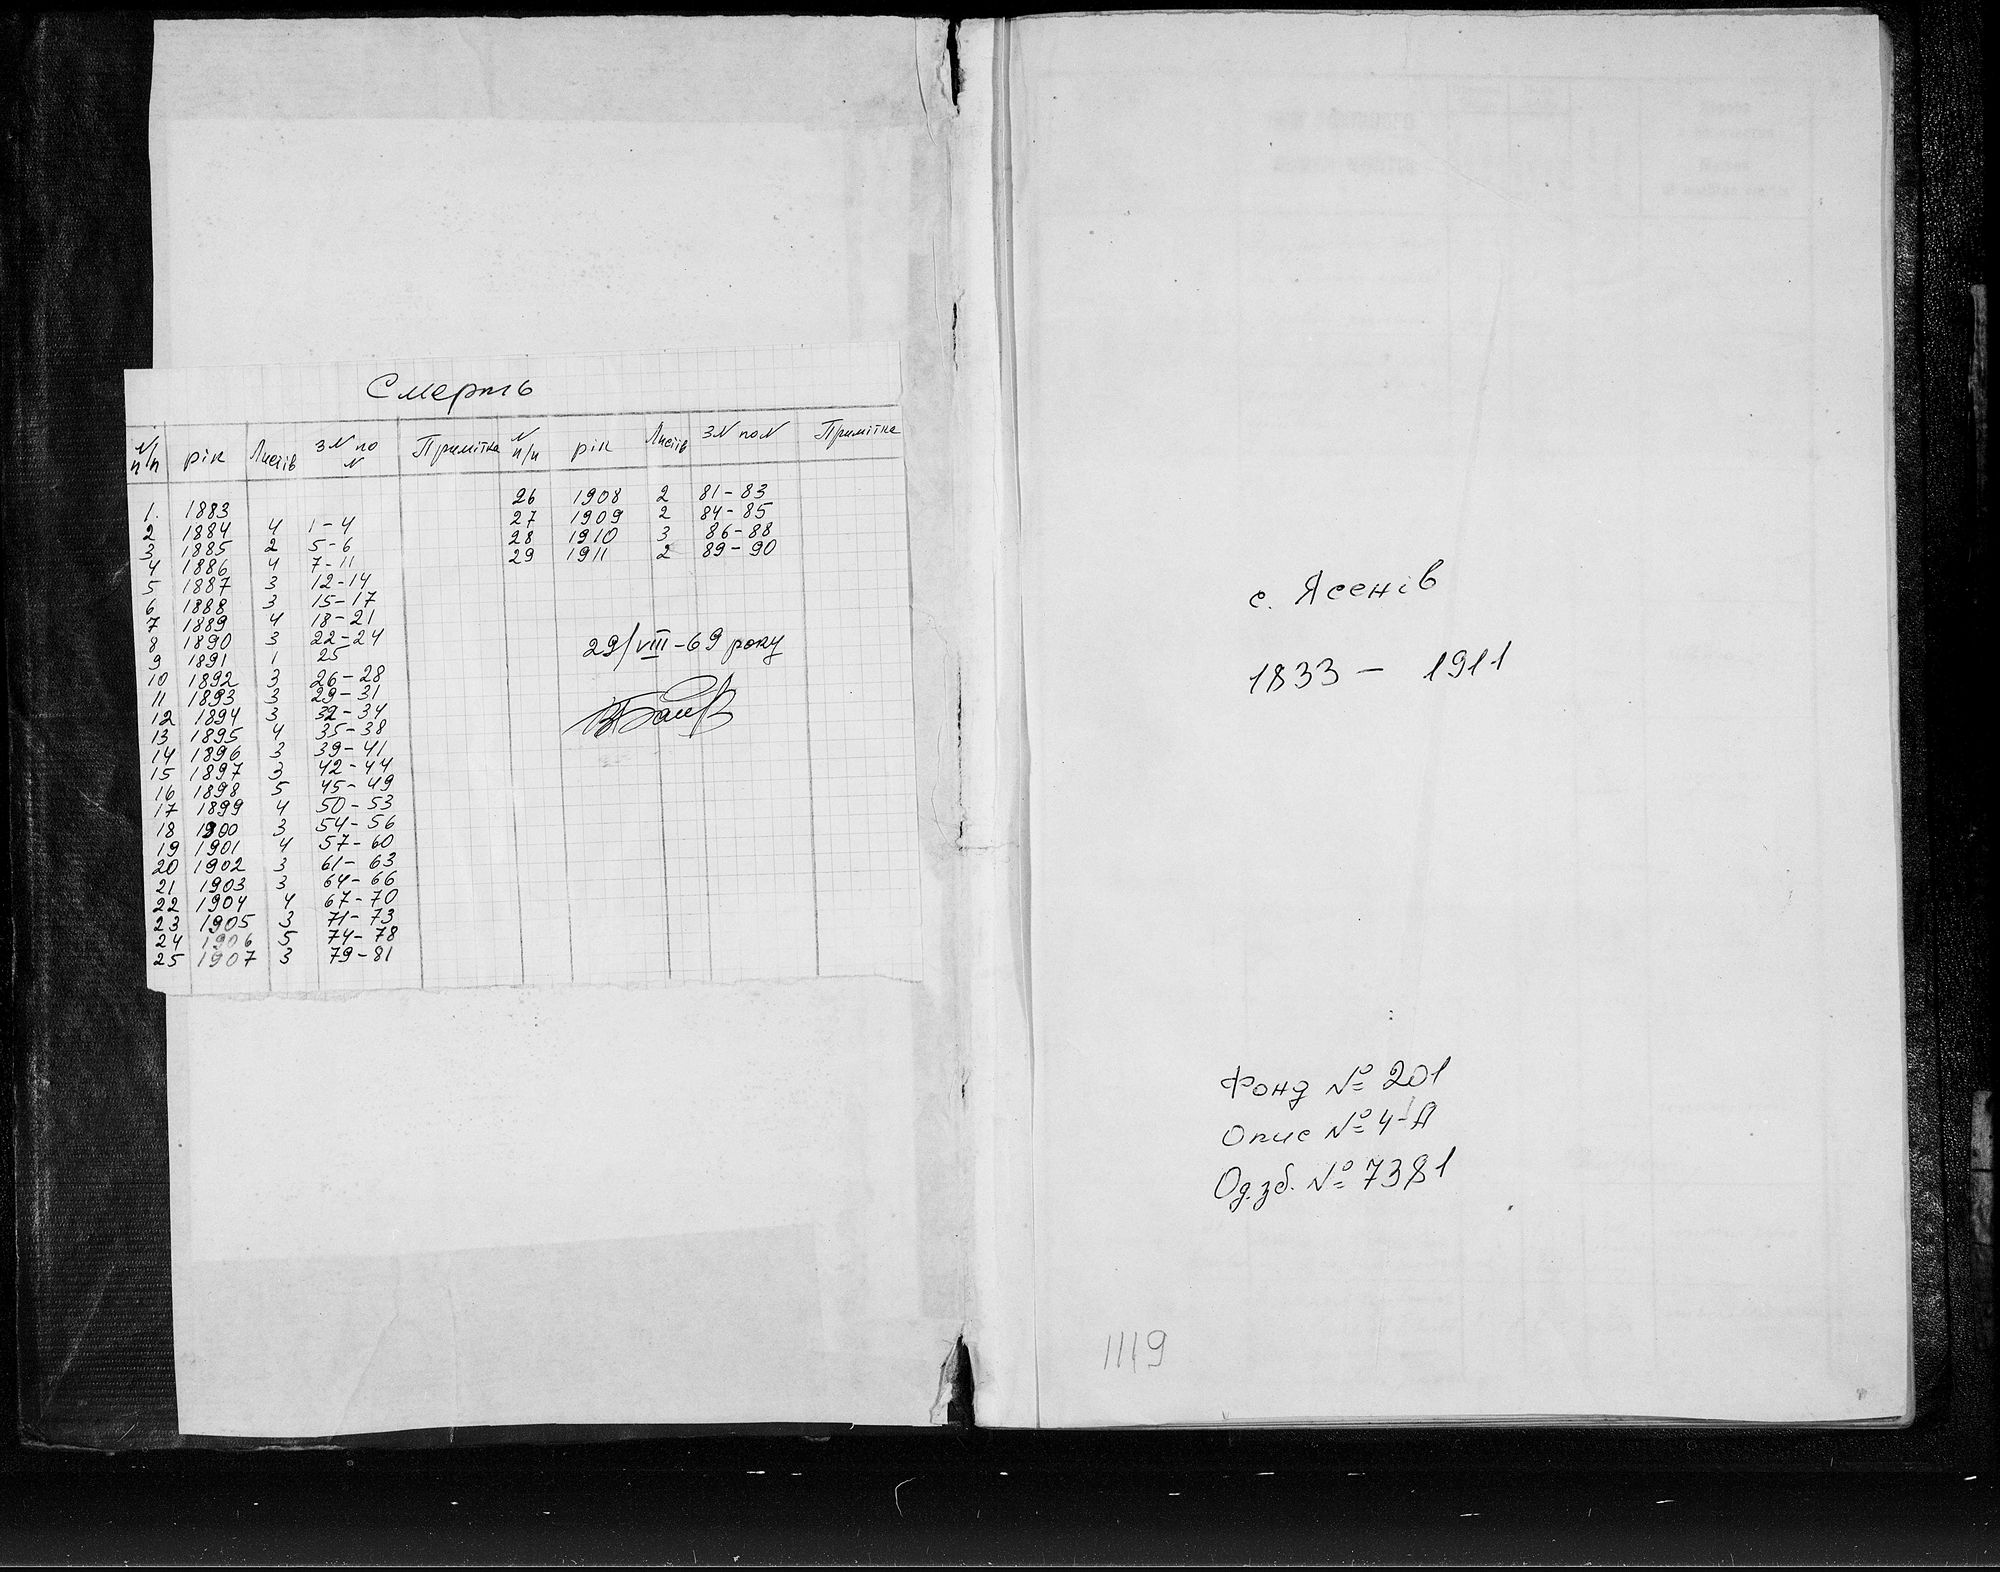 Смерть
N п/п рік Листів З N по N Примітка N п/п рік Листів З N по N Примітка
1. 1883
2 1884 4 1-4
3 1885 2 5-6
4 1886 4 7-11
5 1887 3 12-14
6 1888 3 15-17
7 1889 4 18-21
8 1890 3 22-24
9 1891 1 25
10 1892 3 26-28
11 1893 3 29-31
12 1894 3 32-34
13 1895 4 35-38
14 1896 3 39-41
15 1897 3 42-44
16 1898 5 45-49
17 1899 4 50-53
18 1900 3 54-56
19 1901 4 57-60
20 1902 3 61-63
21 1903 3 64-66
22 1904 4 67-70
23 1905 3 71-73
24 1906 5 74-78
25 1907 3 79-81
26 1908 2 81-83
27 1909 2 84-85
28 1910 3 86-88
29 1911 2 89-90
29/VIII-69 року
с. Ясенів
1833 - 1911
Фонд № 201
Опис № 4-А
Од.зб. № 7381
1119